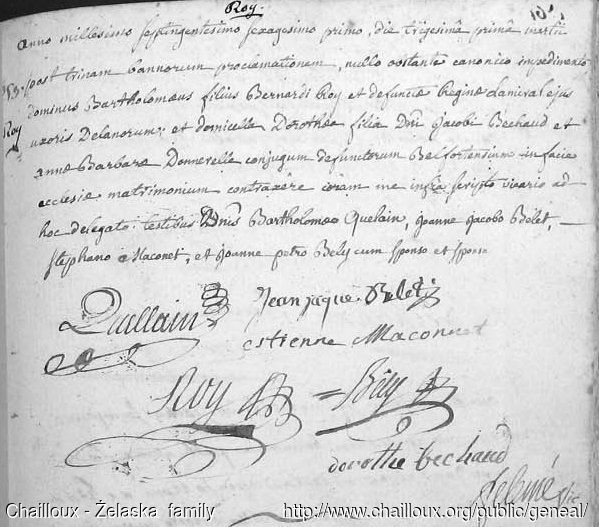 Roy.
Anno millesimo septingentesimo sexagesimo primo, die trigesimâ primâ martii
post trinam bannorum proclamationem, nullo obstante canonico impedimento
dominus Bartholomæus filius Bernardi Roy et defunctæ Reginæ Laniral ejus
Roy
uxoris Delanorum; et domicella Dorothea filia Dni Jacobi Bechaud et
annæ Barbaræ Donnerelle conjugum defunctorum Belfortensium in facie
ecclesiæ matrimonium contraxere coram me infra scripto vicario ad
hoc delegato. testibus Dnis Bartholomeo Quelain, Joanne Jacobo Bélet,
Stephano Maconet, et Joanne petro Bély cum sponso et sponsa
Quellain Jean jaque Belet
estienne Maconnet
Roy = Bély
dorothe bechaud
Chailloux - Żelaska family http://www.chailloux.org/public/geneal/